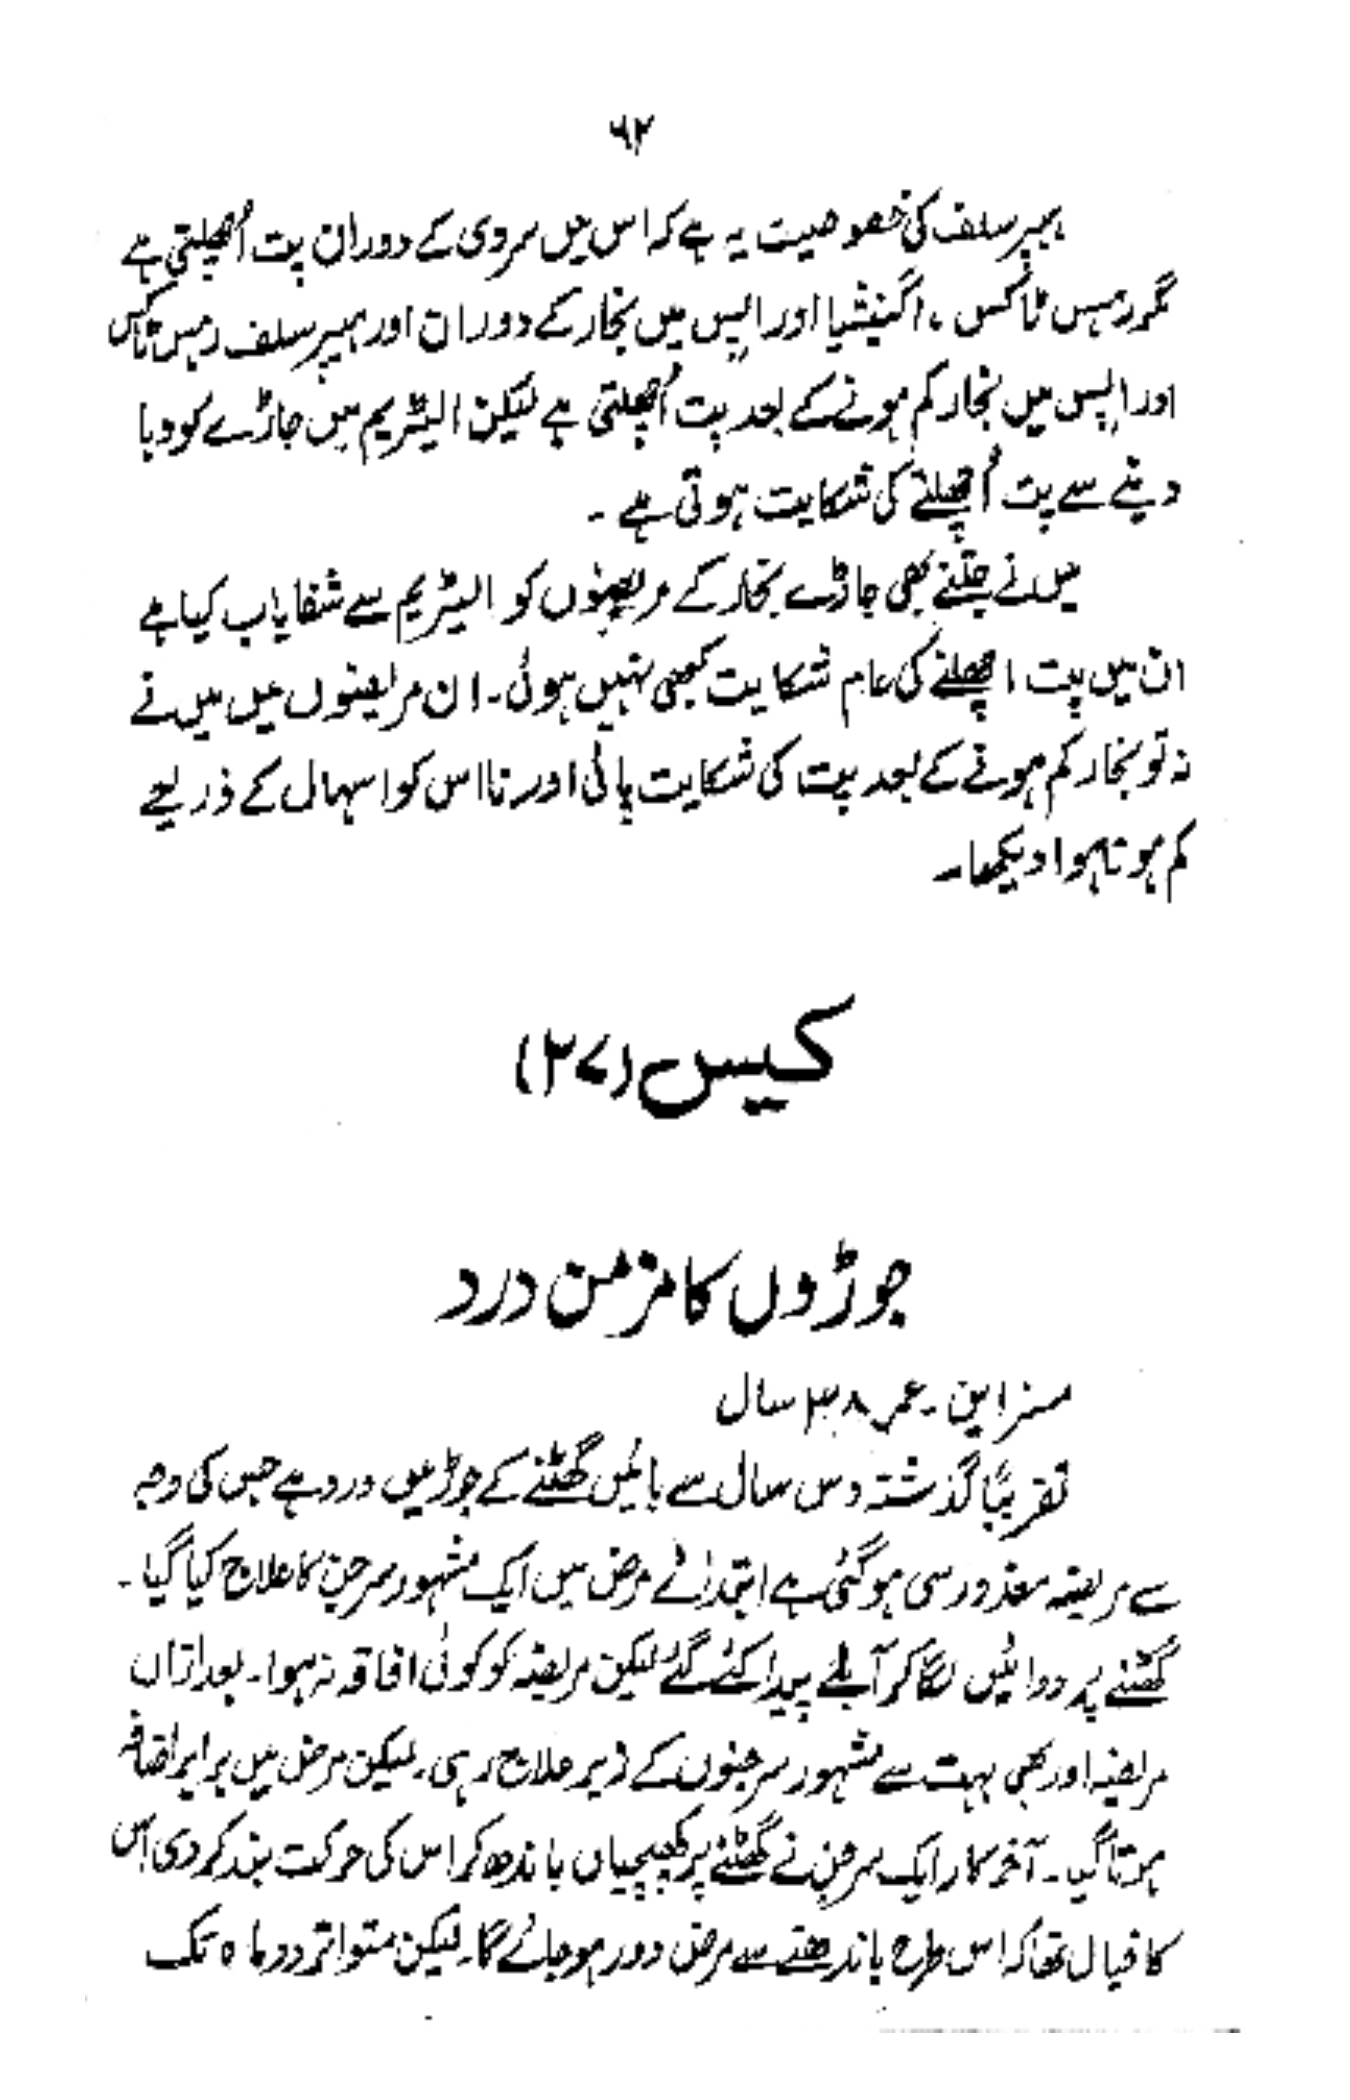 ۹۲
ہیپر سلف کی خصوصیت یہ ہے کہ اس میں سردی کے دوران پت اُچھلتی ہے
مگر رہس ٹاکس ، اگنیشیا اور اپس میں بخار کے دوران اور ہیپر سلف رہس ٹاکس
اور اپس میں بخار کم ہونے کے بعد پت اُچھلتی ہے لیکن الیٹریم میں جاڑے کو دبا
دینے سے پت اُچھلنے کی شکایت ہوتی ہے ۔
میں نے جتنے بھی جاڑے بخار کے مریضوں کو الیٹریم سے شفایاب کیا ہے
ان میں پت اچھلنے کی عام شکایت کبھی نہیں ہوئی۔ ان مریضوں میں میں نے
نہ تو بخار کم ہونے کے بعد پت کی شکایت پائی اور نا اس کو اسہال کے ذریعے
کم ہوتا ہوا دیکھا۔
کیس (۲۷)
جوڑوں کا مزمن درد
مسز این ۔ عمر ۳۸ سال
تقریباً گذشتہ دس سال سے بائیں گھٹنے کے جوڑ میں درد ہے جس کی وجہ
سے مریضہ معذور سی ہو گئی ہے ابتدائے مرض میں ایک مشہور سرجن کا علاج کیا گیا ۔
گھٹنے پر دوائیں لگا کر آبلے پیدا کئے گئے لیکن مریضہ کو کوئی افاقہ نہ ہوا۔ بعد ازاں
مریضہ اور بھی بہت سے مشہور سرجنوں کے زیر علاج رہی۔ لیکن مرض میں برابر اضافہ
ہوتا گیا ۔ آخر کار ایک سرجن نے گھٹنے پر کھپچیاں باندھ کر اس کی حرکت بند کر دی اس
کا خیال تھا کہ اس طرح باندھنے سے مرض دور ہو جائے گا۔ لیکن متواتر دو ماہ تک